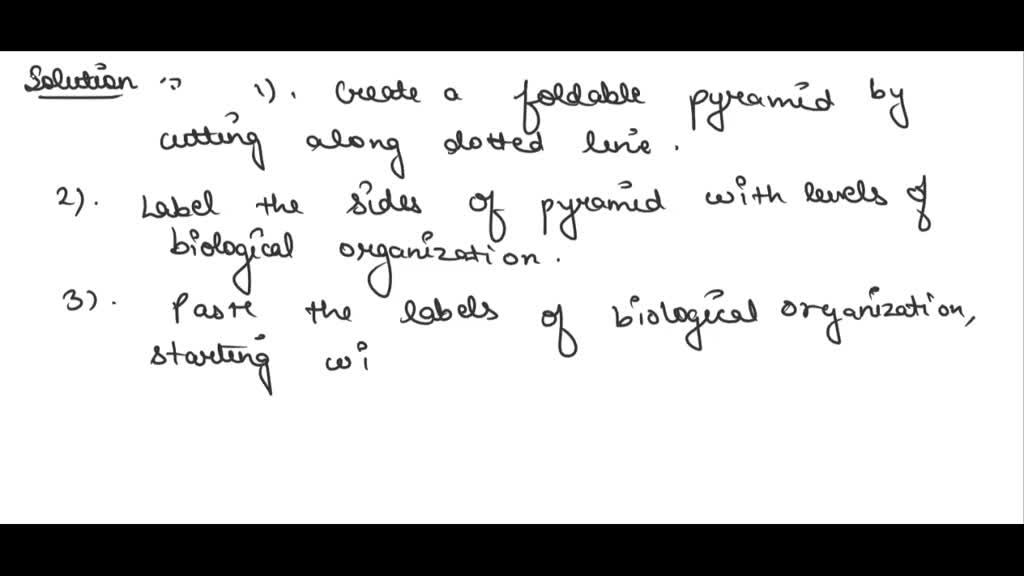 Solution :- 1). Create a foldable pyramid by
cutting along dotted line.
2). Label the sides of pyramid with levels of
biological organization.
3). Paste the labels of biological organization,
starting wi